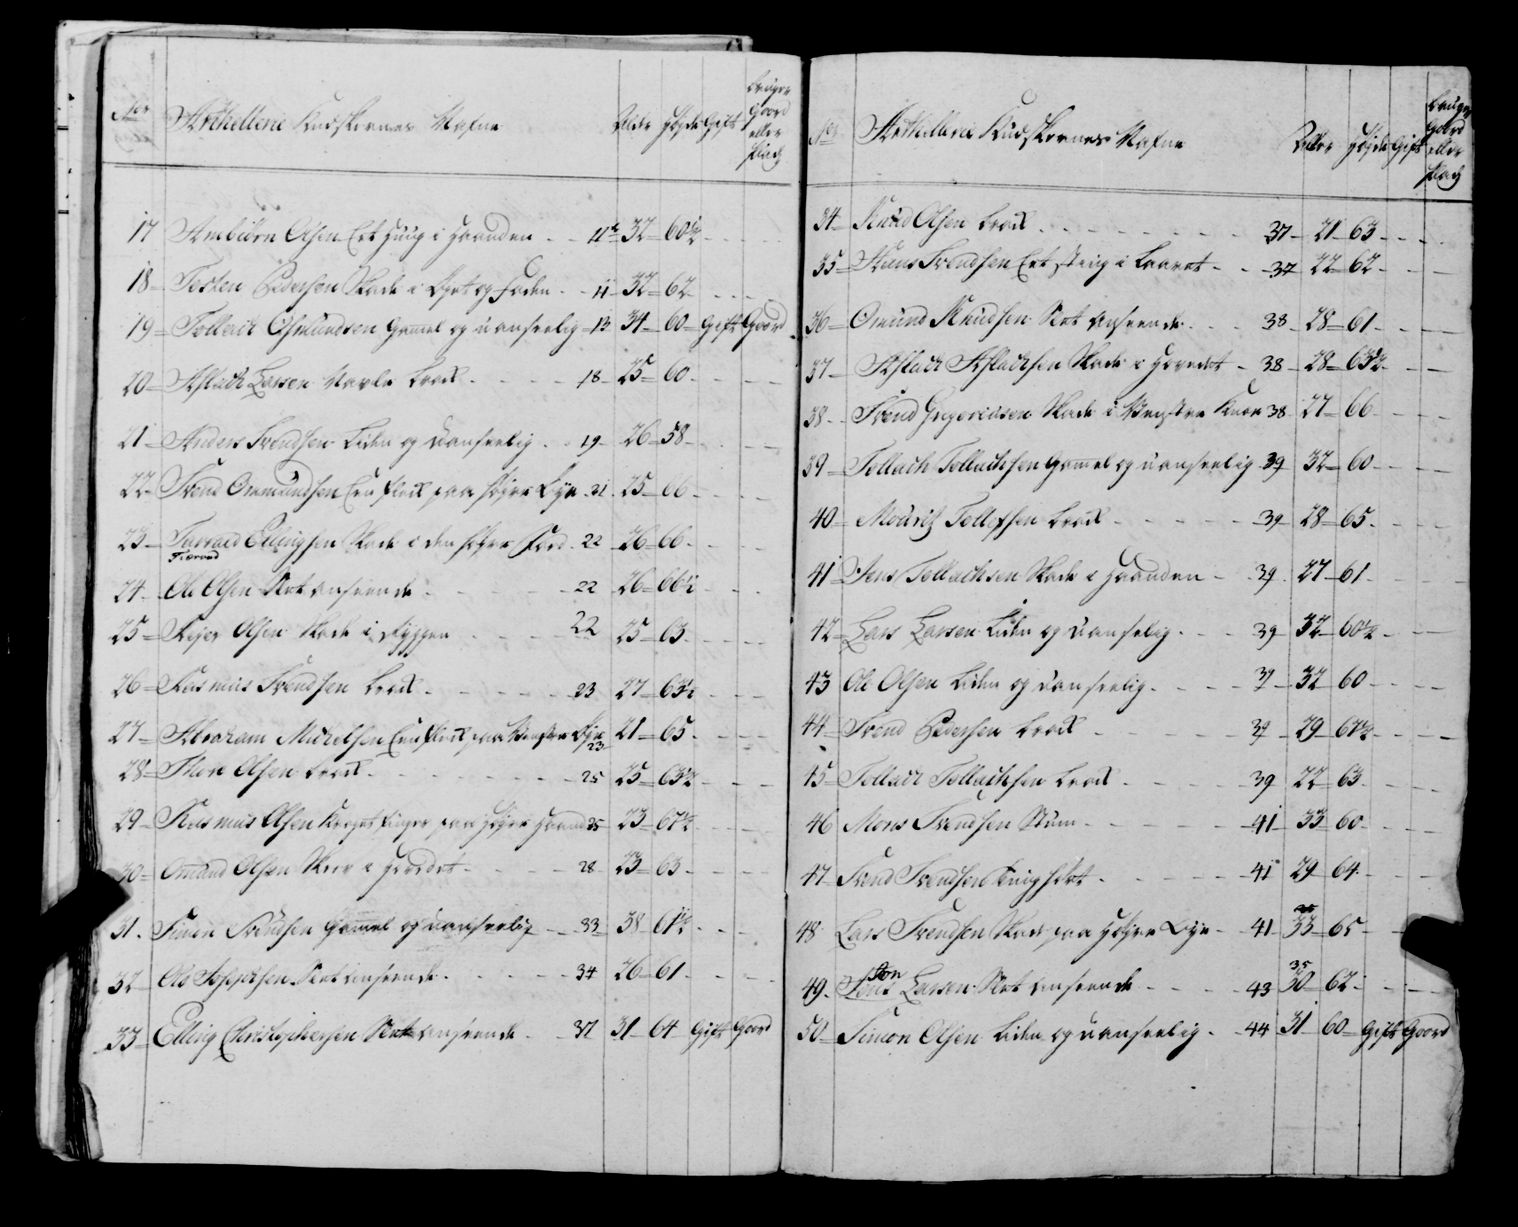 No Arthellerie Kudskernes Nafne Alder Højde Gift Bruger Goord eller Plads
17 Ambiörn Olsen Ert Huug i Haanden 11 32 60½
18 Tosten Pedersen Skade i Lyst og Foden 11 32 62
19 Tollach Osmundsen Gamel og uanseelig 13 34 60 Gift Goord
20 Aslach Larsen Navle brok 18 25 60
21 Anders Svendsen Liden og uanseelig 19 26 58
22 Svend Ommundsen Een flek paa højre Øye 21 25 66
23 Torvaed Ellingsen Skade i den højre Food 22 26 66
24 Ole Olsen Slet anseende 22 26 66½
25 Rejer Olsen Skade i Ryggen 22 25 63
26 Rasmus Svendsen brok 23 27 63½
27 Abraham Michelsen Een flek paa Venstre Øye 23 21 65
28 Thore Olsen brok 25 25 63½
29 Rasmus Olsen Kroget finger paa højre Haand 25 23 67½
30 Omund Olsen Skur i Hovedet 28 23 63
31 Simen Svendsen Gammel og uanseelig 33 38 61½
32 Ole Slet anseende 34 26 61
33 Elling Christophersen Slet anseende 37 31 64 Gift Goord
No Arthellerie Kudskernes Nafne Alder Højde Gift Bruger Goord eller Plads
34 Knud Olsen brok 37 21 63
35 Hans Svendsen Ert i Laaret 37 22 62
36 Omund Knudsen Slet Anseende 38 28 61
37 Aslach Aslachsen Skade i Hovedet 38 28 63½
38 Svend Ingvorsen Skade i Venstre Knæe 38 27 66
39 Tollach Tollachsen Gamel og uanseelig 39 32 60
40 Mouritz Tollefsen brok 39 28 65
41 Jens Tollachsen Skade i Haanden 39 27 61
42 Lars Larsen Liden og uanselig 39 32 60½
43 Ole Olsen Liden og uanseelig 39 32 60
44 Svend Pedersen brok 39 29 67½
45 Tollach Tollachsen brok 39 22 63
46 Mons Svendsen Stum 41 33 60
47 Svend Svendsen 41 29 64
48 Lars Svendsen Skade paa Højre Øye 41 33 65
49 Jon Larsen Slet anseende 43 35 30 62
50 Simon Olsen Liden og uanseelig 44 31 60 Gift Goord